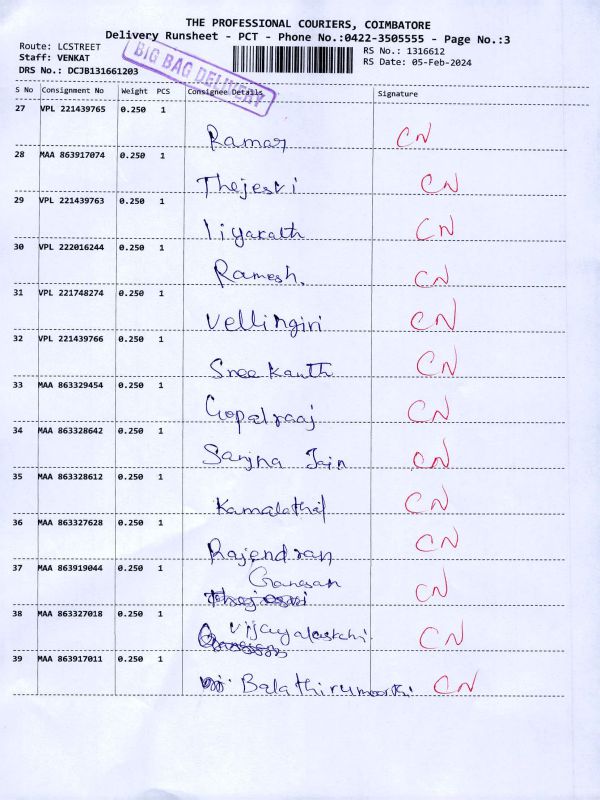 THE PROFESSIONAL COURIERS, COIMBATORE
Delivery Runsheet - PCT - Phone No.:0422-3505555 - Page No.:3
Route: LCSTREET
Staff: VENKAT
DRS No.: DCJB131661203
BIG BAG DELIVERY
RS No.: 1316612
RS Date: 05-Feb-2024
S No Consignment No Weight PCS Consignee Details Signature
27 VPL 221439765 0.250 1
Ramar CN
28 MAA 863917074 0.250 1
Thejesri CN
29 VPL 221439763 0.250 1
liyakath CN
30 VPL 222016244 0.250 1
Ramesh. CN
31 VPL 221748274 0.250 1
Vellingiri CN
32 VPL 221439766 0.250 1
Sreekanth CN
33 MAA 863329454 0.250 1
Gopalraaj CN
34 MAA 863328642 0.250 1
Sanjna Jain CN
35 MAA 863328612 0.250 1
CN
36 MAA 863327628 0.250 1
Rajendran CN
37 MAA 863919044 0.250 1
Ganesan
Thejessri CN
38 MAA 863327018 0.250 1
Vijayalaskchi. CN
39 MAA 863917011 0.250 1
Balathirumoorthi CN